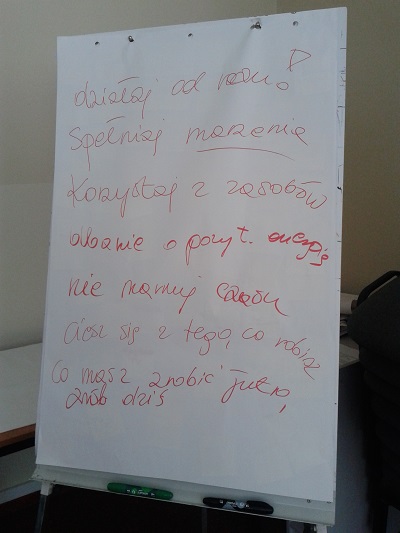 działaj od razu!
Spełniaj marzenia
Korzystaj z zasobów
dbanie o pozyt. energię
nie marnuj czasu
Ciesz się z tego, co robisz
Co masz zrobić jutro,
zrób dziś